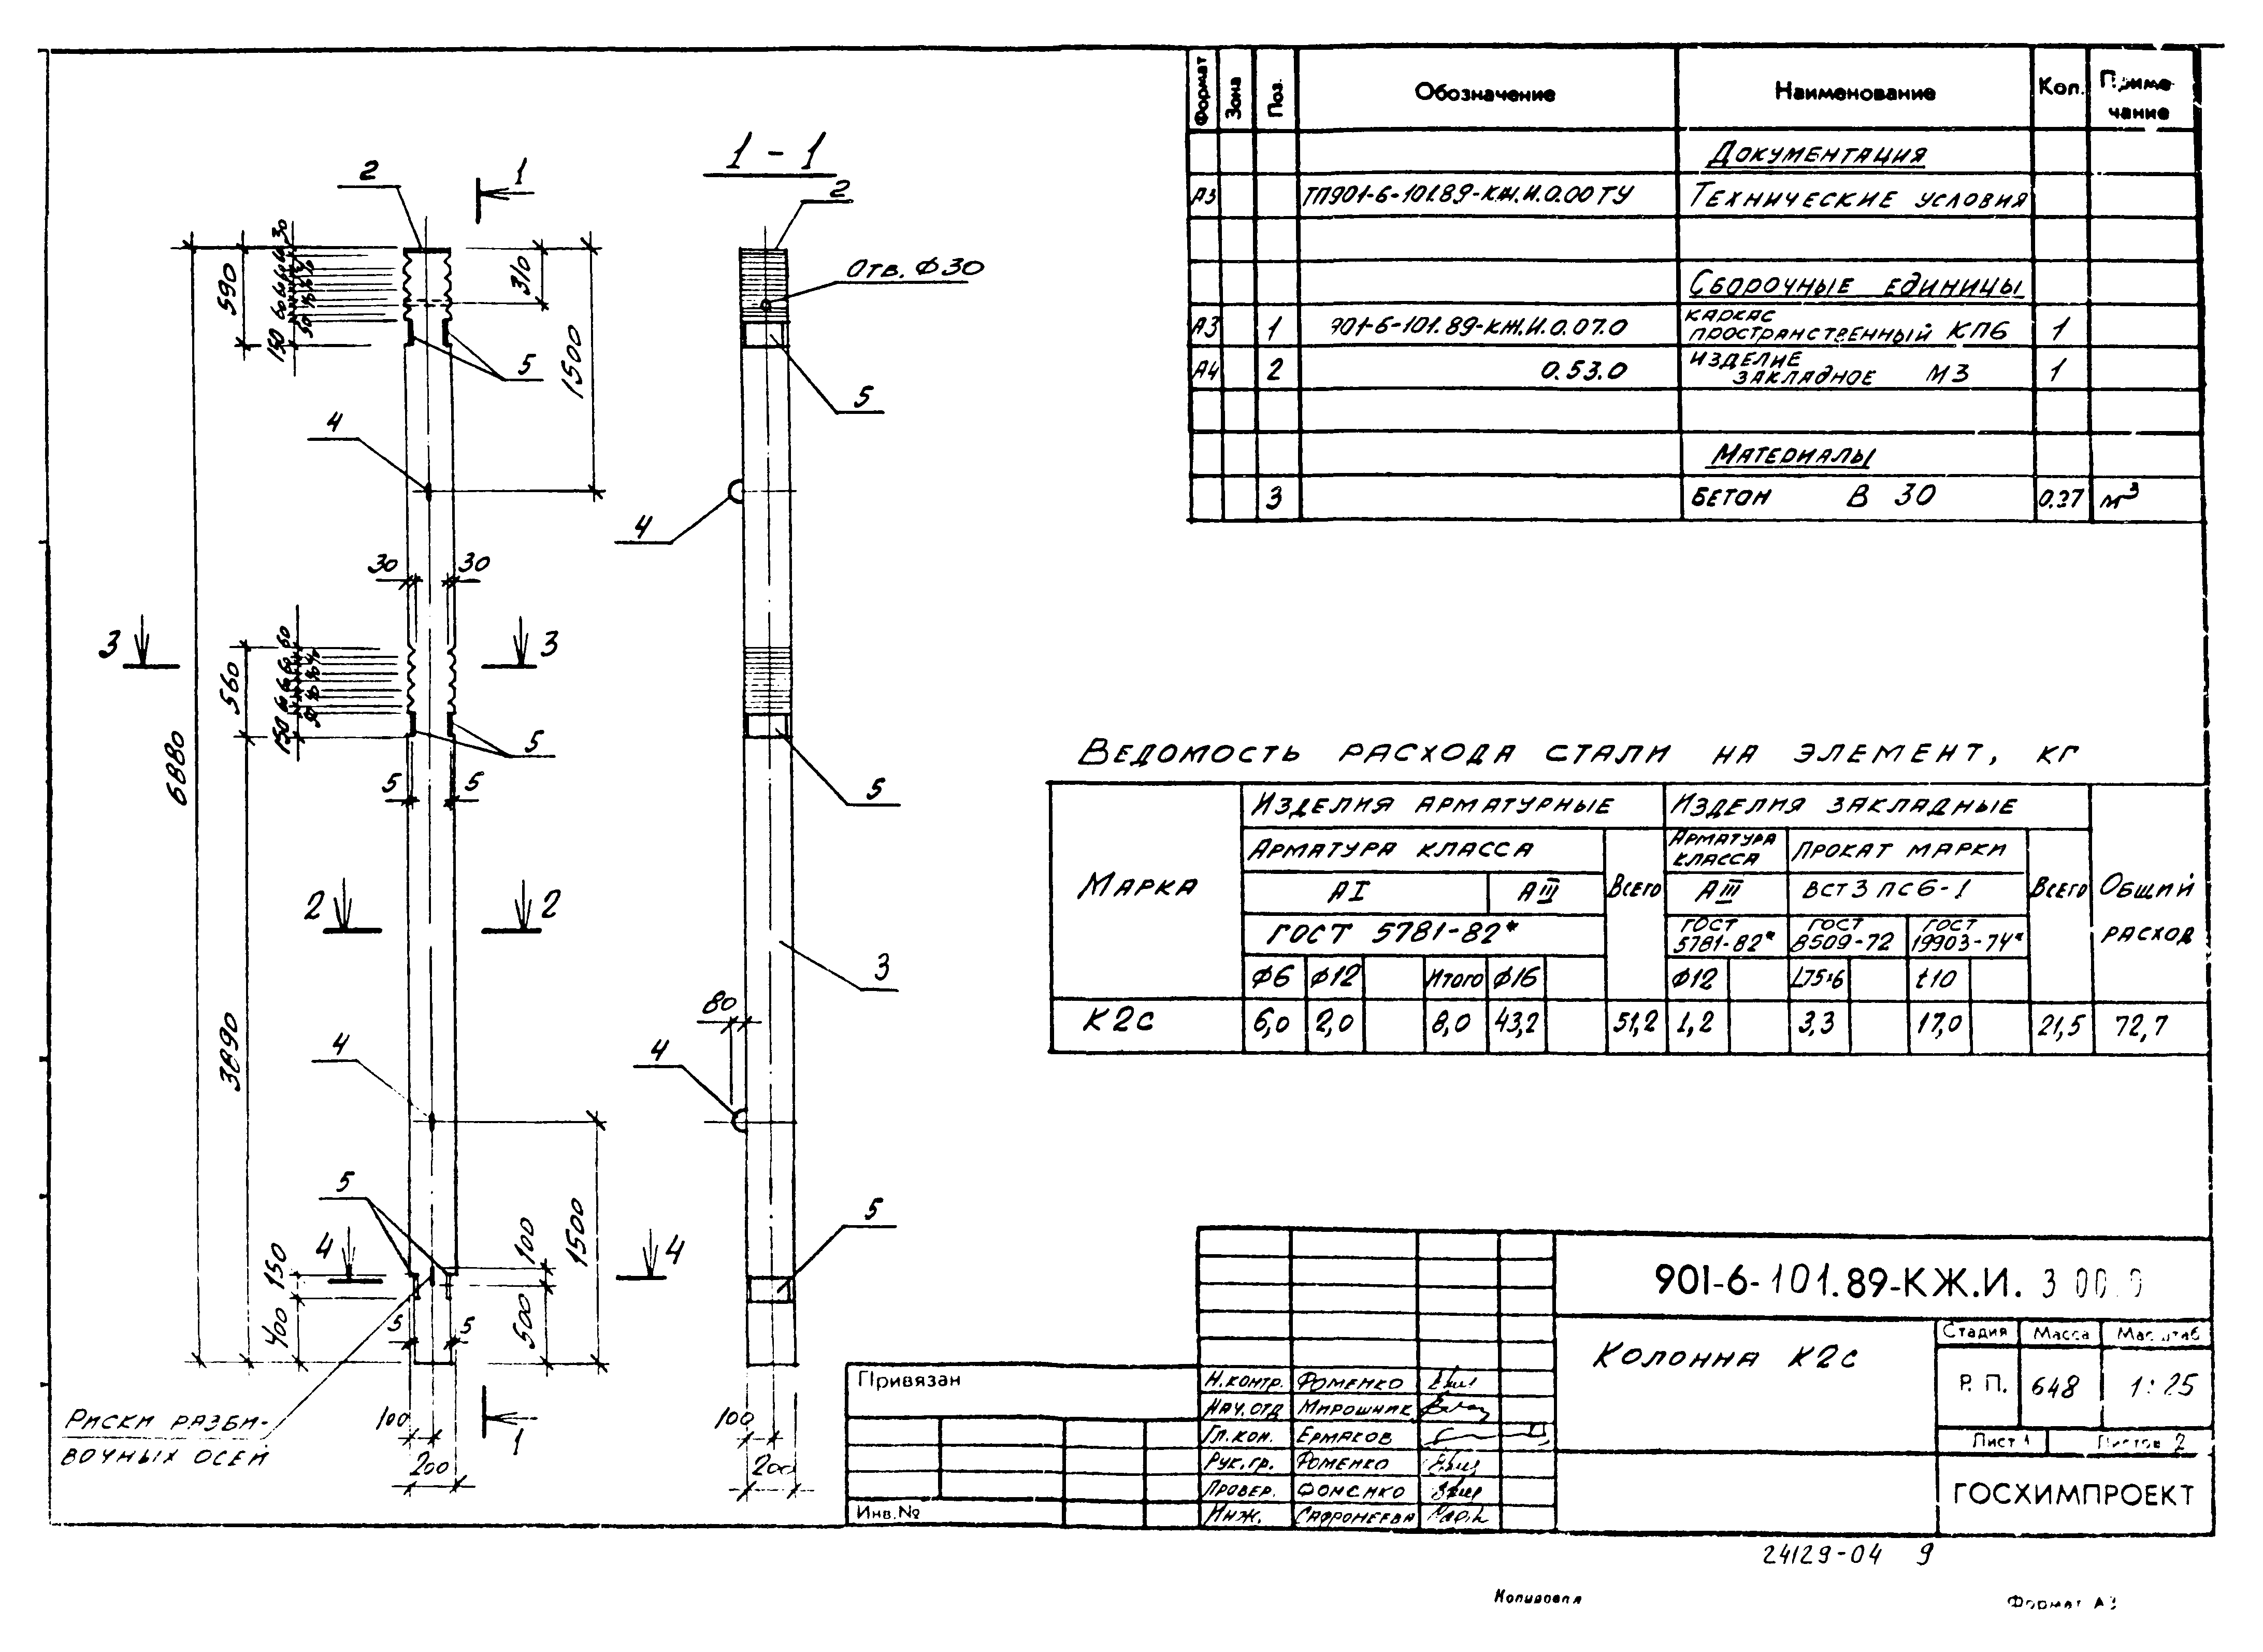 Формат Зона Поз. Обозначение Наименование Кол. Приме-
чание
Документация
А3 ТП901-6-101.89-КЖ.И.0.00 ТУ Технические условия
Сборочные единицы
А3 1 901-6-101.89-КЖ.И.0.07.0 каркас
пространственный КП6 1
А4 2 0.53.0 изделие
закладное М3 1
Материалы
3 бетон В 30 0.27 м³
1 - 1
2
1
2
30
590
310
Отв. Ф30
150
5
1500
5
4
4
30 30
3 3
560
60
150
5
5 5
5
6880
2 2
3
80
3890
4
4
5
5
150
4
100
4
1500
400
500
5 5
Риски разби-
вочных осей
100
200
1
100
200
Ведомость расхода стали на элемент, кг
Марка
Изделия арматурные Изделия закладные
Арматура класса Всего Арматура
класса Прокат марки Всего Общий
расход
АI АIII АIII ВСт3 пс6-1
ГОСТ 5781-82* ГОСТ
5781-82* ГОСТ
8509-72 ГОСТ
19903-74*
Ф6 Ф12 Итого Ф16 Ф12 L75×6 t10
К2с 6,0 2,0 8,0 43,2 51,2 1,2 3,3 17,0 21,5 72,7
901-6-101.89-КЖ.И. 3.00.0
Колонна К2с
Стадия Масса Масштаб
Р. П. 648 1:25
Лист 1 Листов 2
ГОСХИМПРОЕКТ
Привязан
Инв.№
Н.контр. Фоменко
Нач.отд Мирошник
Гл.кон. Ермаков
Рук.гр. Фоменко
Провер. Фоменко
Инж. Сафронеева
24129-04 9
Копировал
Формат А3